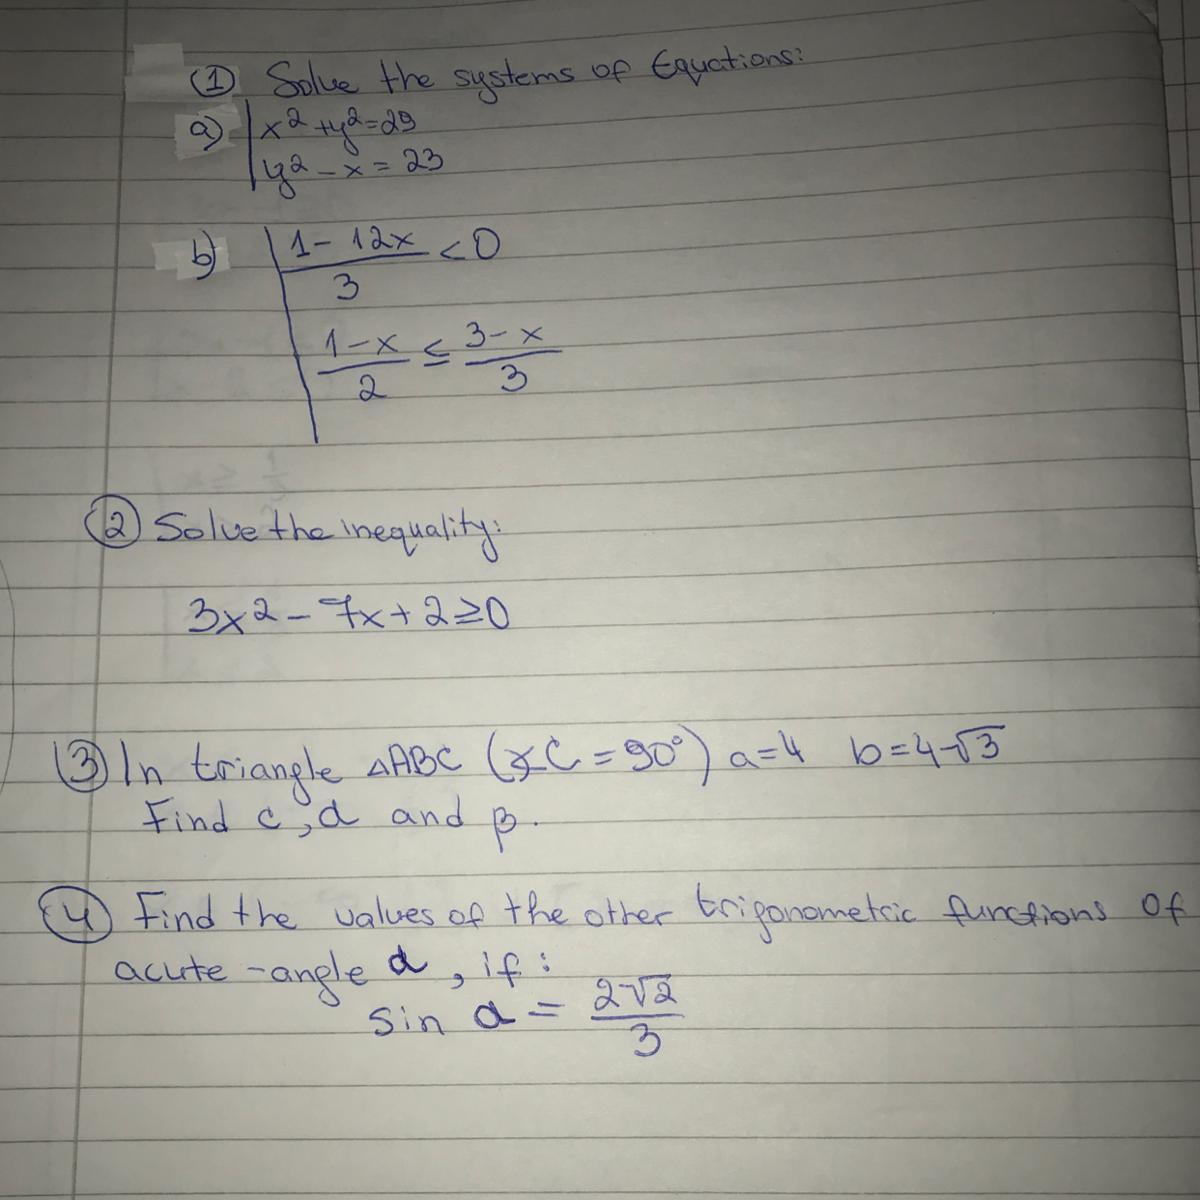 ① Solve the systems of Equations:
a) x² + y² = 29
y² - x = 23
b) 1 - 12x < 0
3
1-x ≤ 3-x
2 3
② Solve the inequality:
3x² - 7x + 2 ≥ 0
③ In triangle △ABC (∢C = 90°) a=4 b=4√3
Find c, α and β.
④ Find the values of the other trigonometric functions of
acute-angle α, if:
sin α = 2√2
3